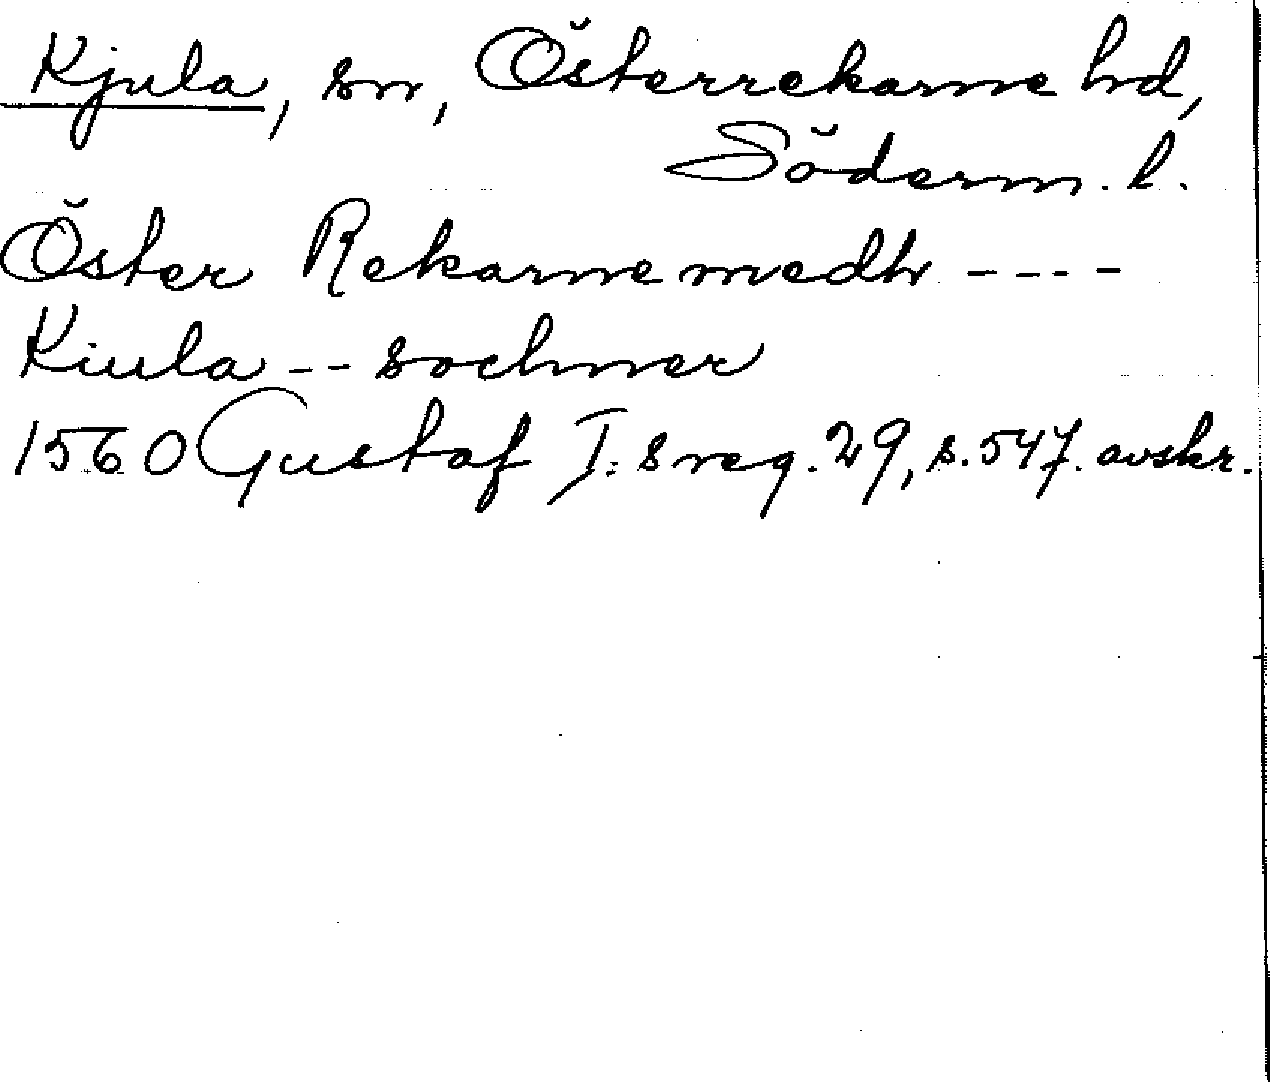 Kjula, sn, Österrekarne hd,
Söderm. l.
Öster Rekarne medh ----
Kiula -- sochner
1560 Gustaf I:s reg. 29, s. 547. avskr.